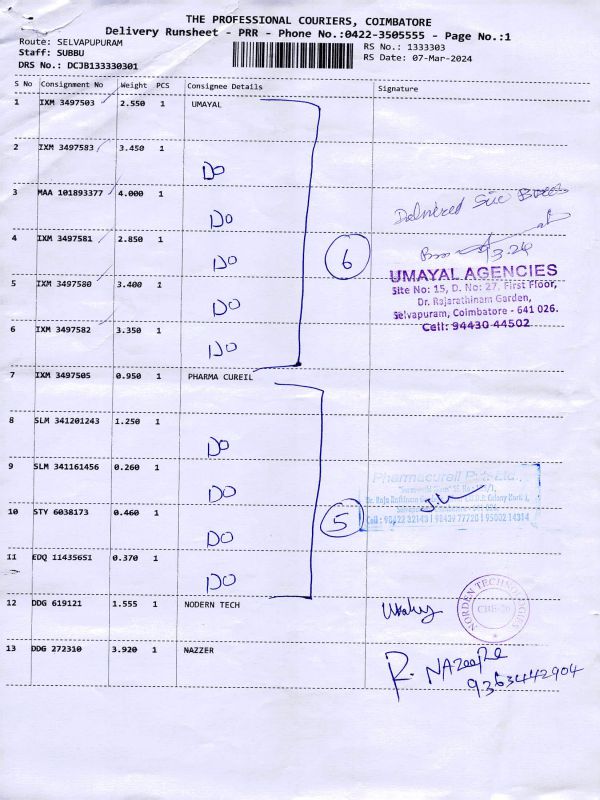 THE PROFESSIONAL COURIERS, COIMBATORE
Delivery Runsheet - PRR - Phone No.:0422-3505555 - Page No.:1
Route: SELVAPUPURAM
RS No.: 1333303
Staff: SUBBU
RS Date: 07-Mar-2024
DRS No.: DCJB133330301
S No Consignment No Weight PCS Consignee Details Signature
1 IXM 3497503 2.550 1 UMAYAL
2 IXM 3497583 3.450 1
Do
3 MAA 101893377 4.000 1
Do
Delivered Six Boxes
4 IXM 3497581 2.850 1
Do
6
3.24
UMAYAL AGENCIES
5 IXM 3497580 3.400 1
Site No: 15, D. No: 27, First Floor,
Dr. Rajarathinam Garden,
Do
Selvapuram, Coimbatore - 641 026.
Cell: 94430 44502
6 IXM 3497582 3.350 1
Do
7 IXM 3497505 0.950 1 PHARMA CUREIL
8 SLM 341201243 1.250 1
Do
9 SLM 341161456 0.260 1
Pharmacureil Pvt. Ltd.,
Do
10 STY 6038173 0.460 1
5
Cell : 90422 32143 | 98439 77720 | 95002 14314
Do
11 EDQ 11435651 0.370 1
Do
12 DDG 619121 1.555 1 NODERN TECH
NORDEN TECHNOLOGIES
CBE-26
13 DDG 272310 3.920 1 NAZZER
R. NAZEERE
9363442904